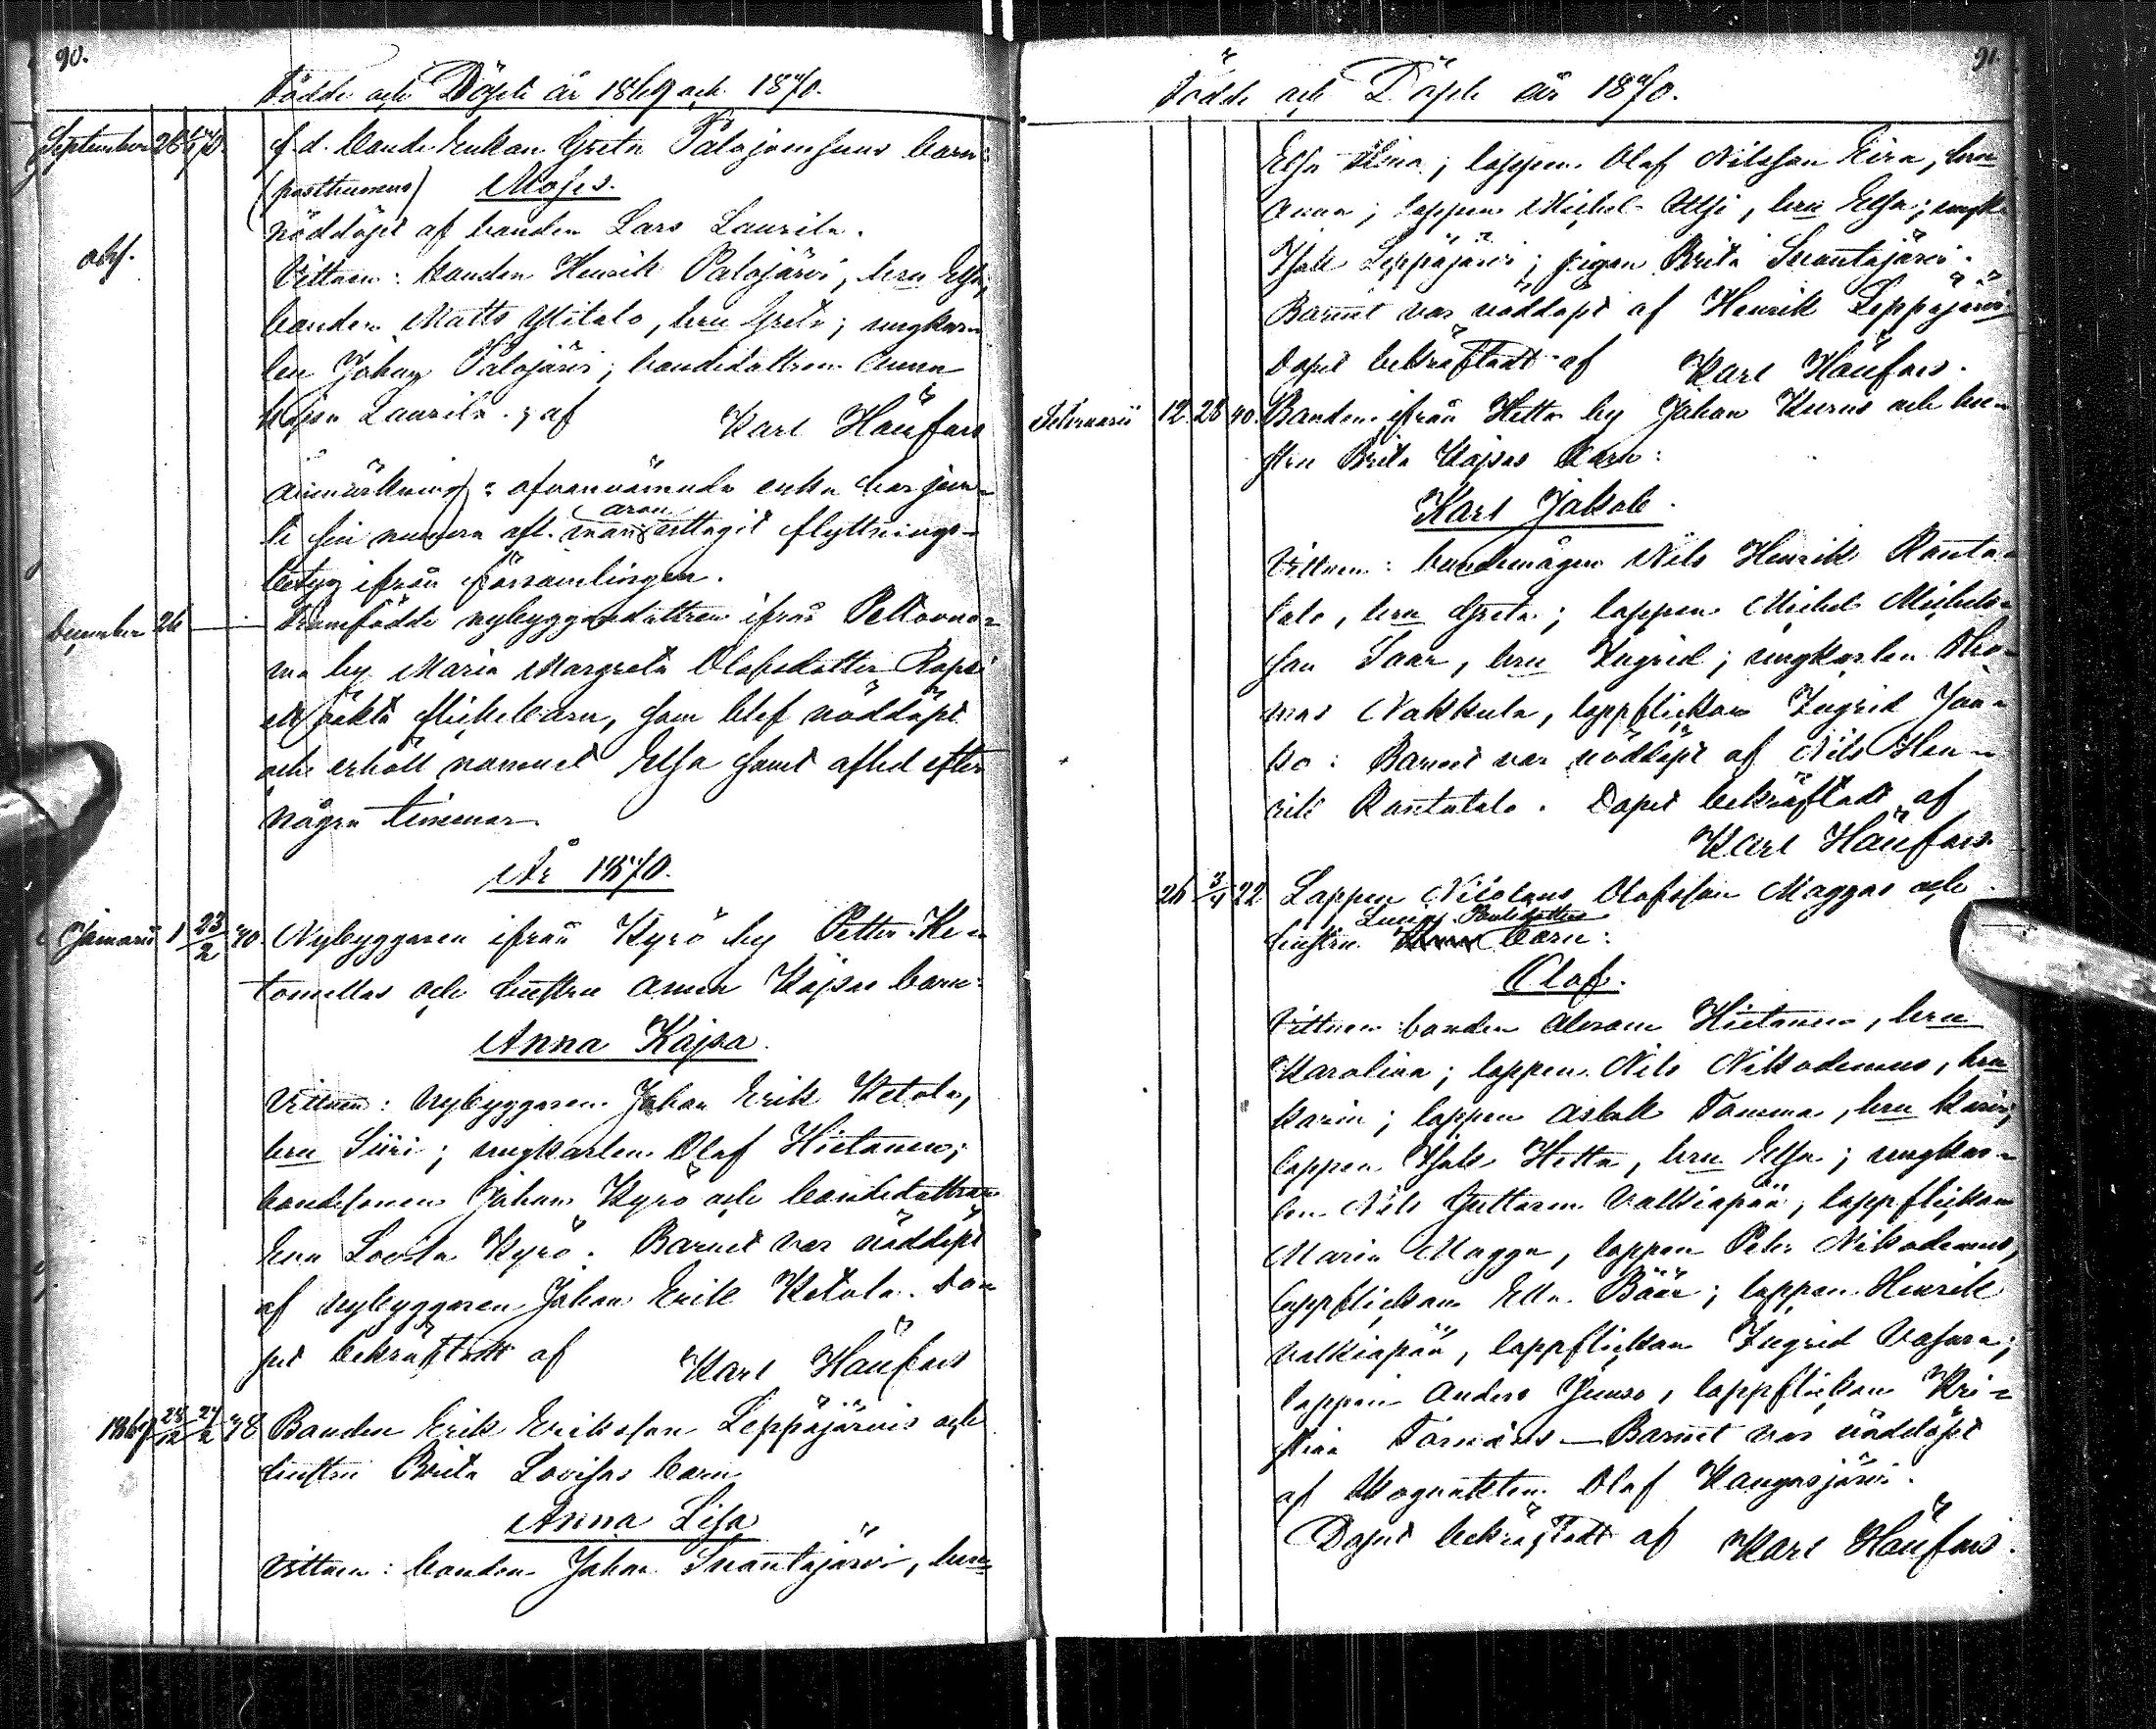 90.
Födde och Döpte år 1869 och 1870.
September 26 f. d. bonde Enkan Greta Palojoensuus barn:
(posthumus) Moses.
nöddöpt af bonden Lars Laurila.
obs.
Vittnen: bonden Henrik Palojärvi, hru Elsa,
bonden Matts Ylitalo, hru Greta; ungkar-
len Johan Palojärvi; bondedottren Anna
Kajsa Laurila; af Karl Heikel
Anmärkning: ofvannämnde enka har jem-
te sin numera afl. man Aron uttagit flyttnings-
betyg ifrån församlingen.
December 26 Framfödde nybyggaredottren ifrån Peltovuo-
ma by Maria Margreta Olofsdotter Ropsi
ett oäkta flickebarn, som blef nöddöpt
och erhöll namnet Elsa samt afled efter
några timmar.
År 1870.
Januarii 1 23/2 40. Nybyggaren ifrån Kyrö by Petter Ke-
tomellas och hustru Anna Kajsas barn:
Anna Kajsa.
Vittnen: Nybyggaren Johan Erik Ketola,
hru Siiri; ungkarlen Olof Hietanen;
bondesonen Johan Kyrö och bondedottren
Eva Lovisa Kyrö. Barnet var nöddöpt
af nybyggaren Johan Erik Ketola. Do-
pet bekräftadt af Karl
1869 28/12 27/2 38 Bonden Erik Eriksson Leppäjärvis och
hustru Brita Lovisas barn
Anna Lisa
Vittnen: bonden Johan Suontajärvi, hru
91
Födde och Döpte år 1870.
Elsa Stina; lappen Olof Nilsson Eira, hru
Anna; lappen Michel, hru Elsa; ungk.
Isak Leppäjärvi; pigan Brita Suontajärvi.
Barnet var nöddöpt af Henrik Leppäjärvi
Dopet bekräftadt af Karl
Februarii 12 28 40. Bonden ifrån Hetta by Johan Keerus och hu-
stru Brita Kajsas barn:
Karl Jakob.
Vittnen: bondemågen Nils Henrik Ranta-
talo, hru Greta; lappen Michel Michels-
son Saar, hru Ingrid; ungkarlen Tho-
mas Nakkula, lappflickan Ingrid Juu-
so: Barnet var nöddöpt af Nils Hen-
rik Rantatalo. Dopet bekräftadt af
Karl
26 3/4 22 Lappen Nicolaus Olofsson Maggas och
hustru Paulsdotters barn:
Olof.
Vittnen bonden Abram Hietanen, hru
Karolina; lappen Nils Nikodemus, hru
Karin; lappen Aslak Tomma, hru Karin;
lappen Isak Hetta, hru Elsa; ungkar-
len Nils Guttorm Valkiapää, lappflickan
Maria Magga, lappen Peter Nikodemus,
lappflickan Ella Bäär; lappen Henrik
Valkiapää, lappflickan Ingrid Vasara;
lappen Anders Juuso, lappflickan Kri-
stina Tornensis — Barnet var nöddöpt
af Olof Kangasjärvi.
Dopet bekräftadt af Karl